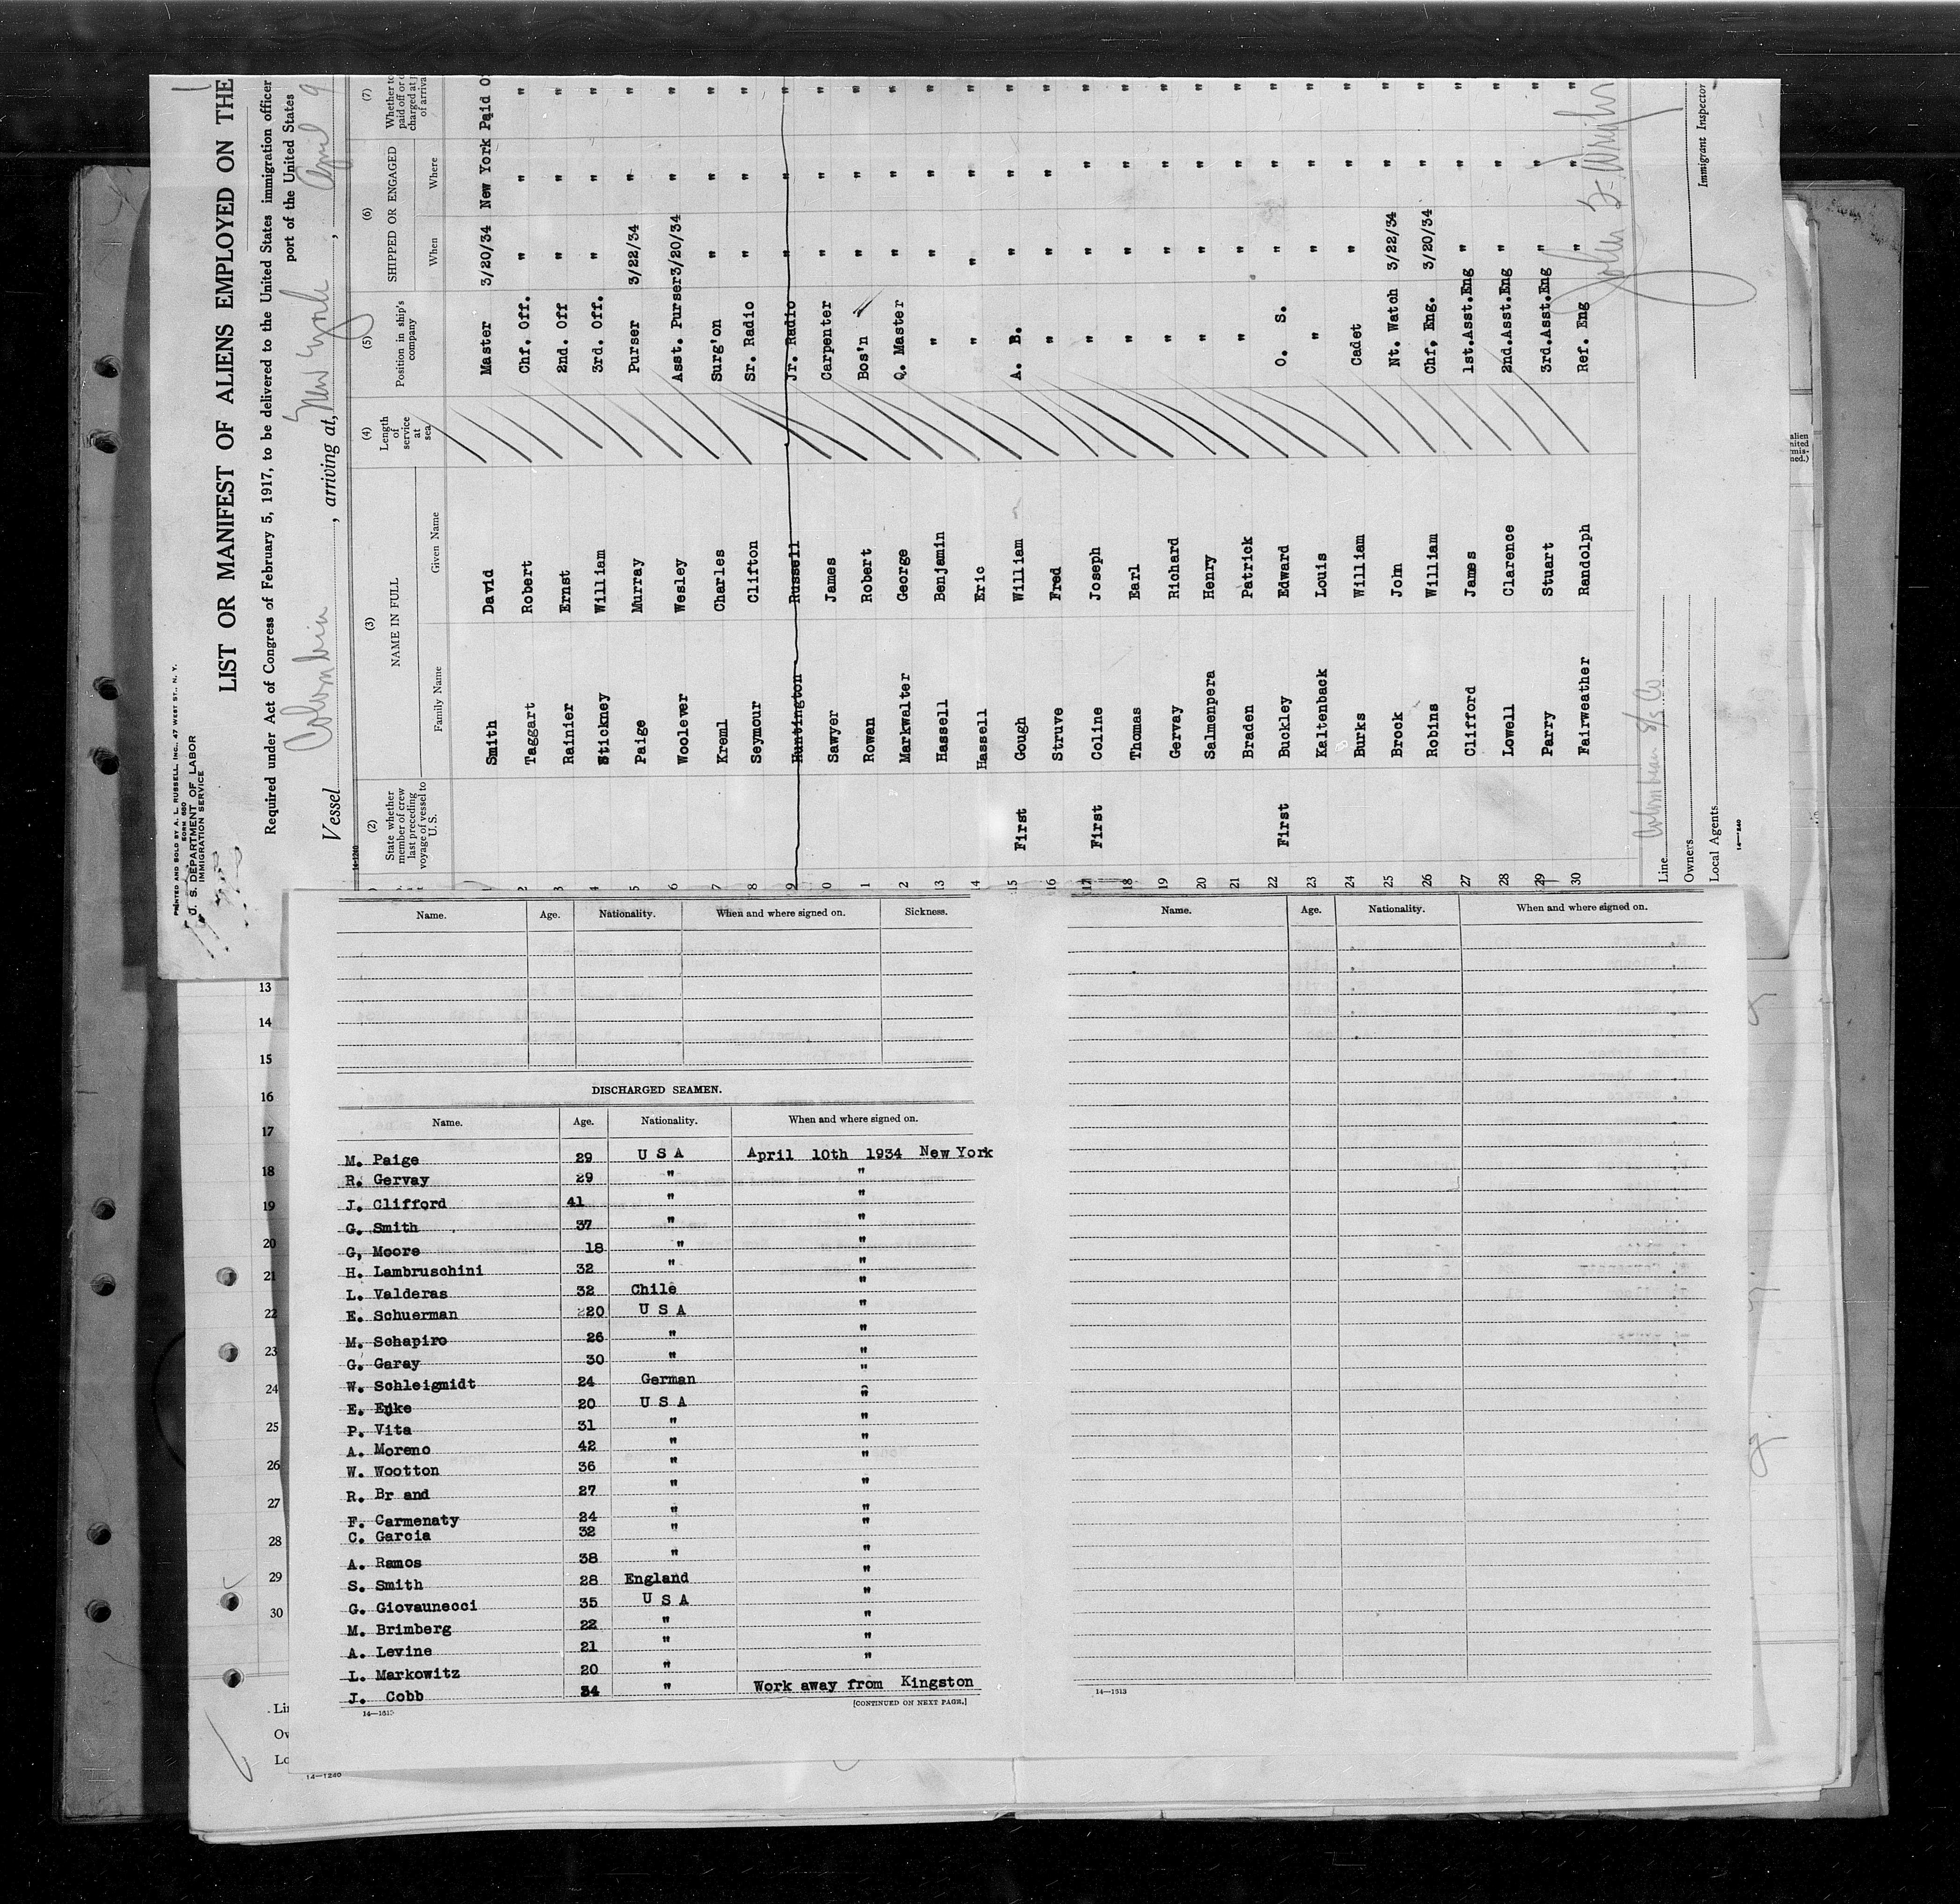 PRINTED AND SOLD BY A. L. RUSSELL, INC., 47 WEST ST., N. Y.
FORM 680
U. S. DEPARTMENT OF LABOR
IMMIGRATION SERVICE
LIST OR MANIFEST OF ALIENS EMPLOYED ON THE
Required under Act of Congress of February 5, 1917, to be delivered to the United States immigration officer
port of the United States
Vessel Colombia, arriving at New York, April 9
14-1240
(2) (3) (4) (5) (6) (7)
State whether member of crew last preceding voyage of vessel to U. S.
NAME IN FULL
Family Name Given Name
Length of service at sea
Position in ship's company
SHIPPED OR ENGAGED
When Where
Whether to paid off or charged at of arriva
1 Smith David Master 3/20/34 New York Paid O
2 Taggart Robert Chf. Off. " " "
3 Rainier Ernst 2nd. Off " " "
4 Stickney William 3rd. Off. " " "
5 Paige Murray Purser 3/22/34 " "
6 Woolever Wesley Asst. Purser 3/20/34 " "
7 Kreml Charles Surg'on " " "
8 Seymour Clifton Sr. Radio " " "
9 Huntington Russell Jr. Radio " " "
0 Sawyer James Carpenter " " "
1 Rowan Robert Bos'n " " "
2 Markwalter George Q. Master " " "
13 Hassell Benjamin " " " "
14 Hassell Eric " " " "
15 First Gough William A. B. " " "
16 Struve Fred " " " "
17 First Coline Joseph " " " "
18 Thomas Earl " " " "
19 Gervay Richard " " " "
20 Salmenpera Henry " " " "
21 Braden Patrick " " " "
22 First Buckley Edward O. S. " " "
23 Kaltenback Louis " " " "
24 Burks William Cadet " " "
25 Brock John Nt. Watch 3/22/34 " "
26 Robins William Chf. Eng. 3/20/34 " "
27 Clifford James 1st.Asst.Eng " " "
28 Lowell Clarence 2nd.Asst.Eng " " "
29 Parry Stuart 3rd.Asst.Eng " " "
30 Fairweather Randolph Ref. Eng " " "
Line Colombian S/S Co
Owners
Local Agents
14-1240
Immigrant Inspector
alien
nited
mis-
ned.)
Name. Age. Nationality. When and where signed on. Sickness.
DISCHARGED SEAMEN.
Name. Age. Nationality. When and where signed on.
M. Paige 29 U S A April 10th 1934 New York
R. Gervay 29 " "
J. Clifford 41 " "
G. Smith 37 " "
G, Moore 18 " "
H. Lambruschini 32 " "
L. Valderas 32 Chile "
E. Schuerman 20 U S A "
M. Schapiro 26 " "
G. Garay 30 " "
W. Schleigmidt 24 German "
E. Enke 20 U S A "
P. Vita 31 " "
A. Moreno 42 " "
W. Wootton 36 " "
R. Br and 27 " "
F. Carmenaty 24 " "
C. Garcia 32 " "
A. Ramos 38 " "
S. Smith 28 England "
G. Giovaunecci 35 U S A "
M. Brimberg 22 " "
A. Levine 21 " "
L. Markowitz 20 " "
J. Cobb 34 " Work away from Kingston
[CONTINUED ON NEXT PAGE.]
14—1613
Name. Age. Nationality. When and where signed on.
14—1613
13
14
15
16
17
18
19
20
21
22
23
24
25
26
27
28
29
30
Lin
Ow
Lo
14—1240